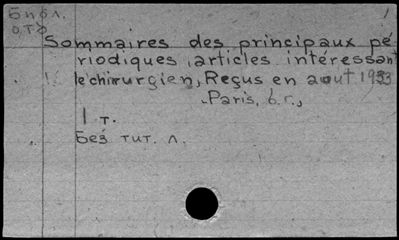 Библ.
отд
Sommaires des principaux pé-
riodiques, articles intéressant
le chirurgien, Reçus en aout 1933
Paris, б.г.,
1 т.
Без тит. л.